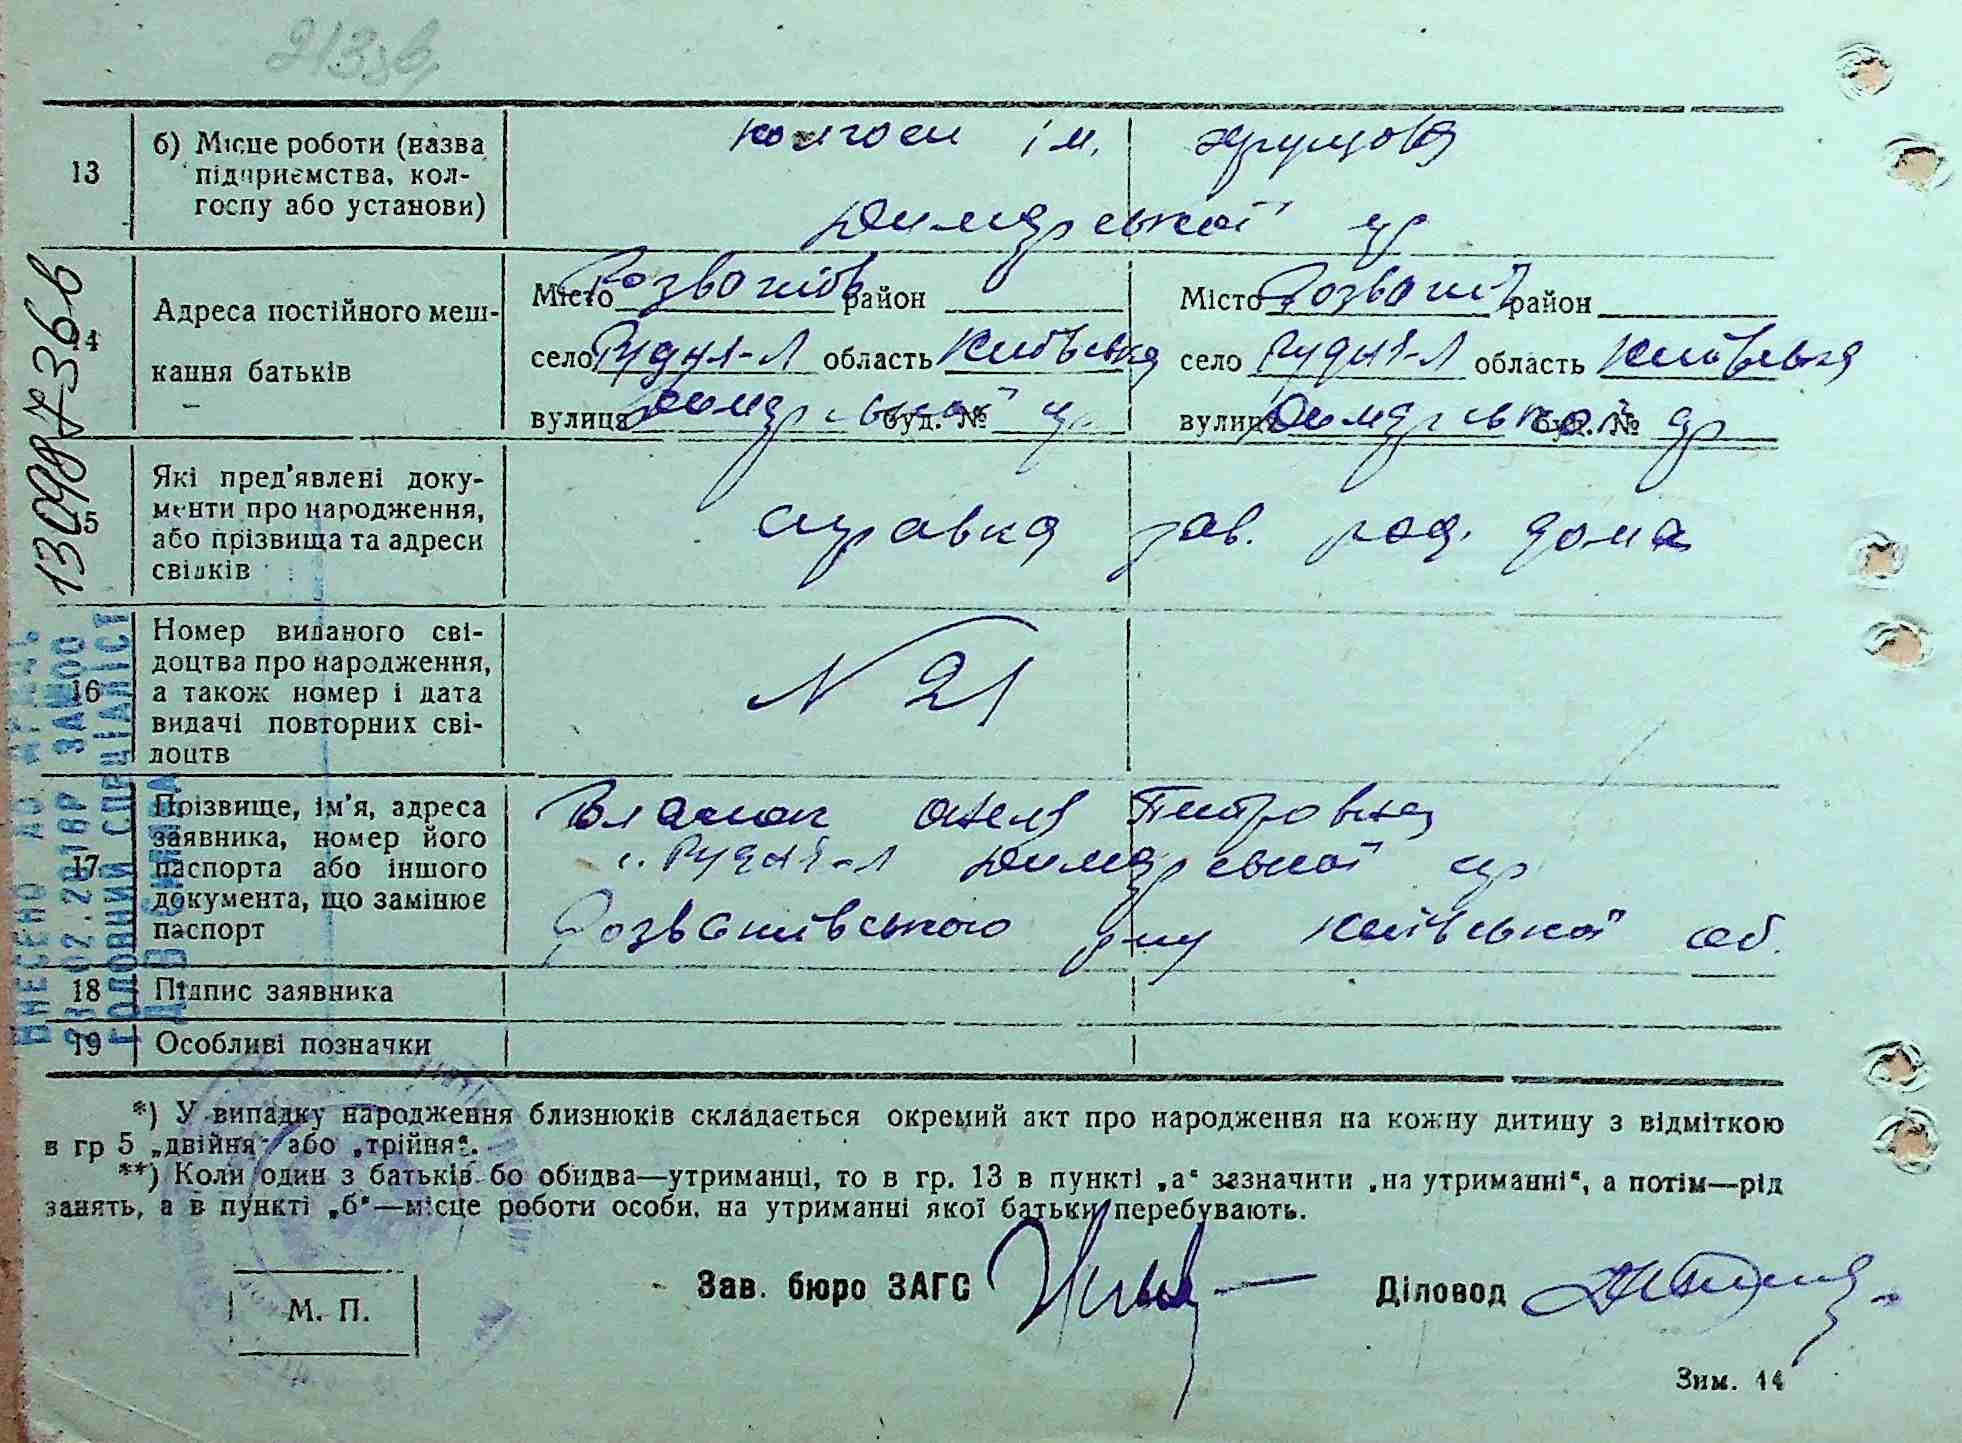 13
б) Місце роботи (назва
підприємства, кол-
госпу або установи)
колгосп ім. Хрущова
Димарської ср
14
Адреса постійного меш-
кання батьків
Місто Розважів район
село Рудня-Л область Київська
вулиця Димарської ср буд. №
Місто Розважів район
село Рудня-Л область Київська
вулиця Димарської ср буд. №
15
Які пред'явлені доку-
менти про народження,
або прізвища та адреси
свідків
справка зав. род. дома
16
Номер виданого сві-
доцтва про народження,
а також номер і дата
видачі повторних сві-
доцтв
N 21
17
Прізвище, ім'я, адреса
заявника, номер його
паспорта або іншого
документа, що замінює
паспорт
Петровна
с. Рудня-Л Димарської ср
Розважівського р-ну Київської об.
18
Підпис заявника
19
Особливі позначки
*) У випадку народження близнюків складається окремий акт про народження на кожну дитину з відміткою
в гр 5 „двійня“ або „трійня“.
**) Коли один з батьків бо обидва—утриманці, то в гр. 13 в пункті „а“ зазначити „на утриманні“, а потім—рід
занять, а в пункті „б“—місце роботи особи, на утриманні якої батьки перебувають.
М. П.
Зав. бюро ЗАГС
Діловод
Зим. 14
ВНЕСЕНО ДО
ГОЛОВНИЙ СПЕЦІАЛІСТ